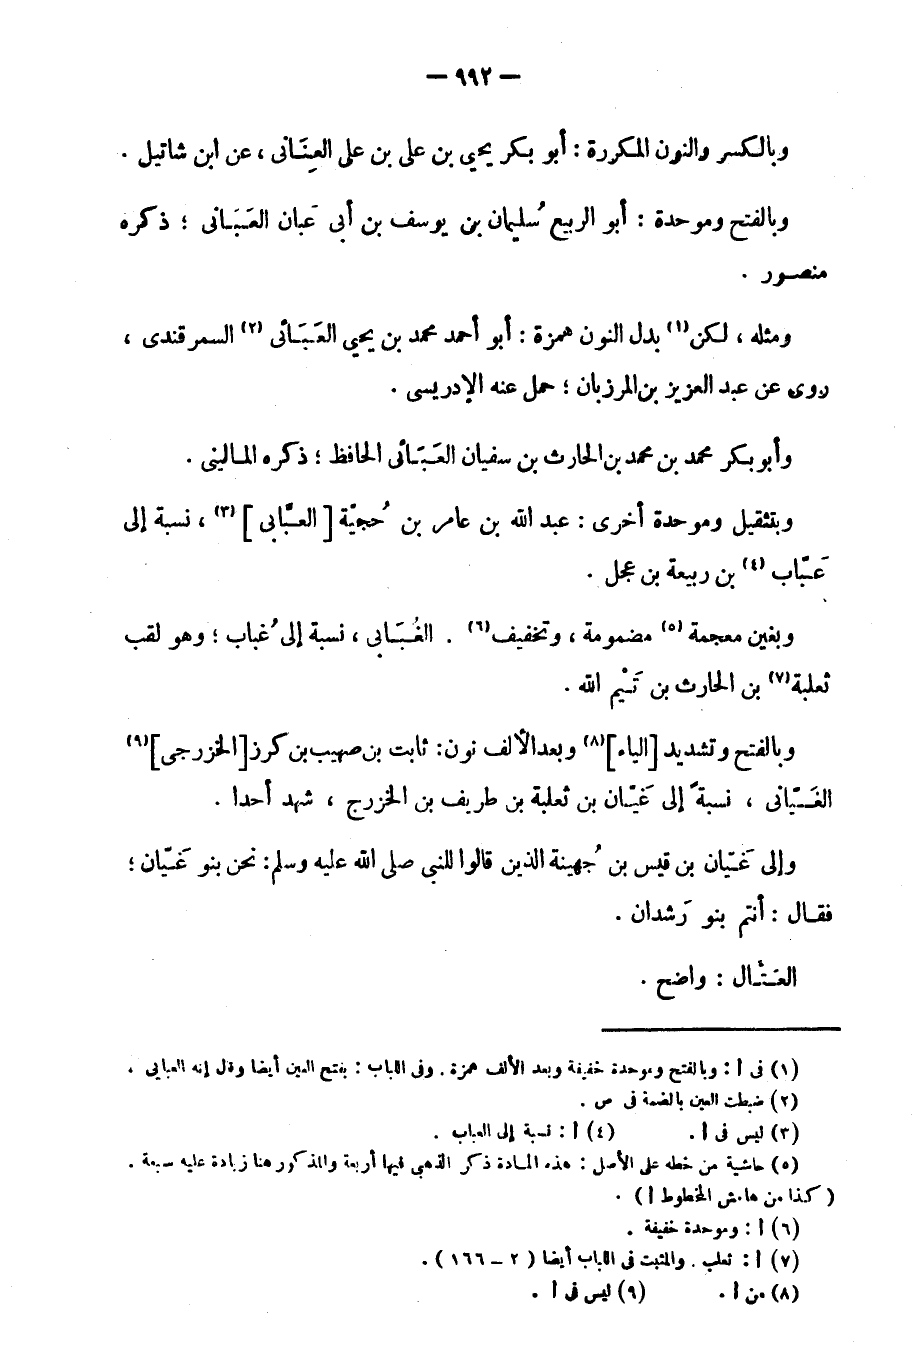 — ٩٩٢ —
وبالكسر والنون المكررة : أبو بكر يحيى بن على بن على العِنَّانى ، عن ابن شاتيل .
وبالفتح وموحدة : أبو الربيع سُليمان بن يوسف بن أبى عَبان العَبَانى ؛ ذكره
منصور .
ومثله ، لكن(١) بدل النون همزة : أبو أحمد محمد بن يحيى العَبَائى (٢) السمرقندى ،
روى عن عبد العزيز بن المرزبان ؛ حمل عنه الإدريسى .
وأبو بكر محمد بن محمد بن الحارث بن سفيان العَبَائى الحافظ ؛ ذكره المالينى .
وبتثقيل وموحدة أخرى : عبد الله بن عامر بن حُجيّة [ العبَّابى ] (٣) ، نسبة إلى
عَبّاب (٤) بن ربيعة بن عجل .
وبغين معجمة (٥) مضمومة ، وتخفيف (٦) . الغُبَابى ، نسبة إلى غُباب ؛ وهو لقب
ثعلبة (٧) بن الحارث بن تَيْم الله .
وبالفتح وتشديد [الياء] (٨) وبعد الألف نون : ثابت بن صهيب بن كرز [الخزرجى] (٩)
الغَيّانى ، نسبةً إلى غَيّان بن ثعلبة بن طريف بن الخزرج ، شهد أحدا .
وإلى غَيّان بن قيس بن جُهينة الذين قالوا للنبى صلى الله عليه وسلم : نحن بنو غَيّان ؛
فقال : أنتم بنو رَشدان .
العَتّال : واضح .
(١) فى أ : وبالفتح وموحدة خفيفة وبعد الألف همزة . وفى اللباب : بفتح العين أيضا وقال إنه العبايى .
(٢) ضبطت العين بالضمة فى ص .
(٣) ليس فى أ . (٤) أ : نسبة إلى العباب .
(٥) حاشية من خطه على الأصل : هذه المادة ذكر الذهبى فيها أربعة والمذكور هنا زيادة عليه سبعة .
( كذا من هامش المخطوط أ ) .
(٦) أ : وموحدة خفيفة .
(٧) أ : ثعلب . والمثبت فى اللباب أيضا ( ٢ – ١٦٦ ) .
(٨) من أ . (٩) ليس فى أ .